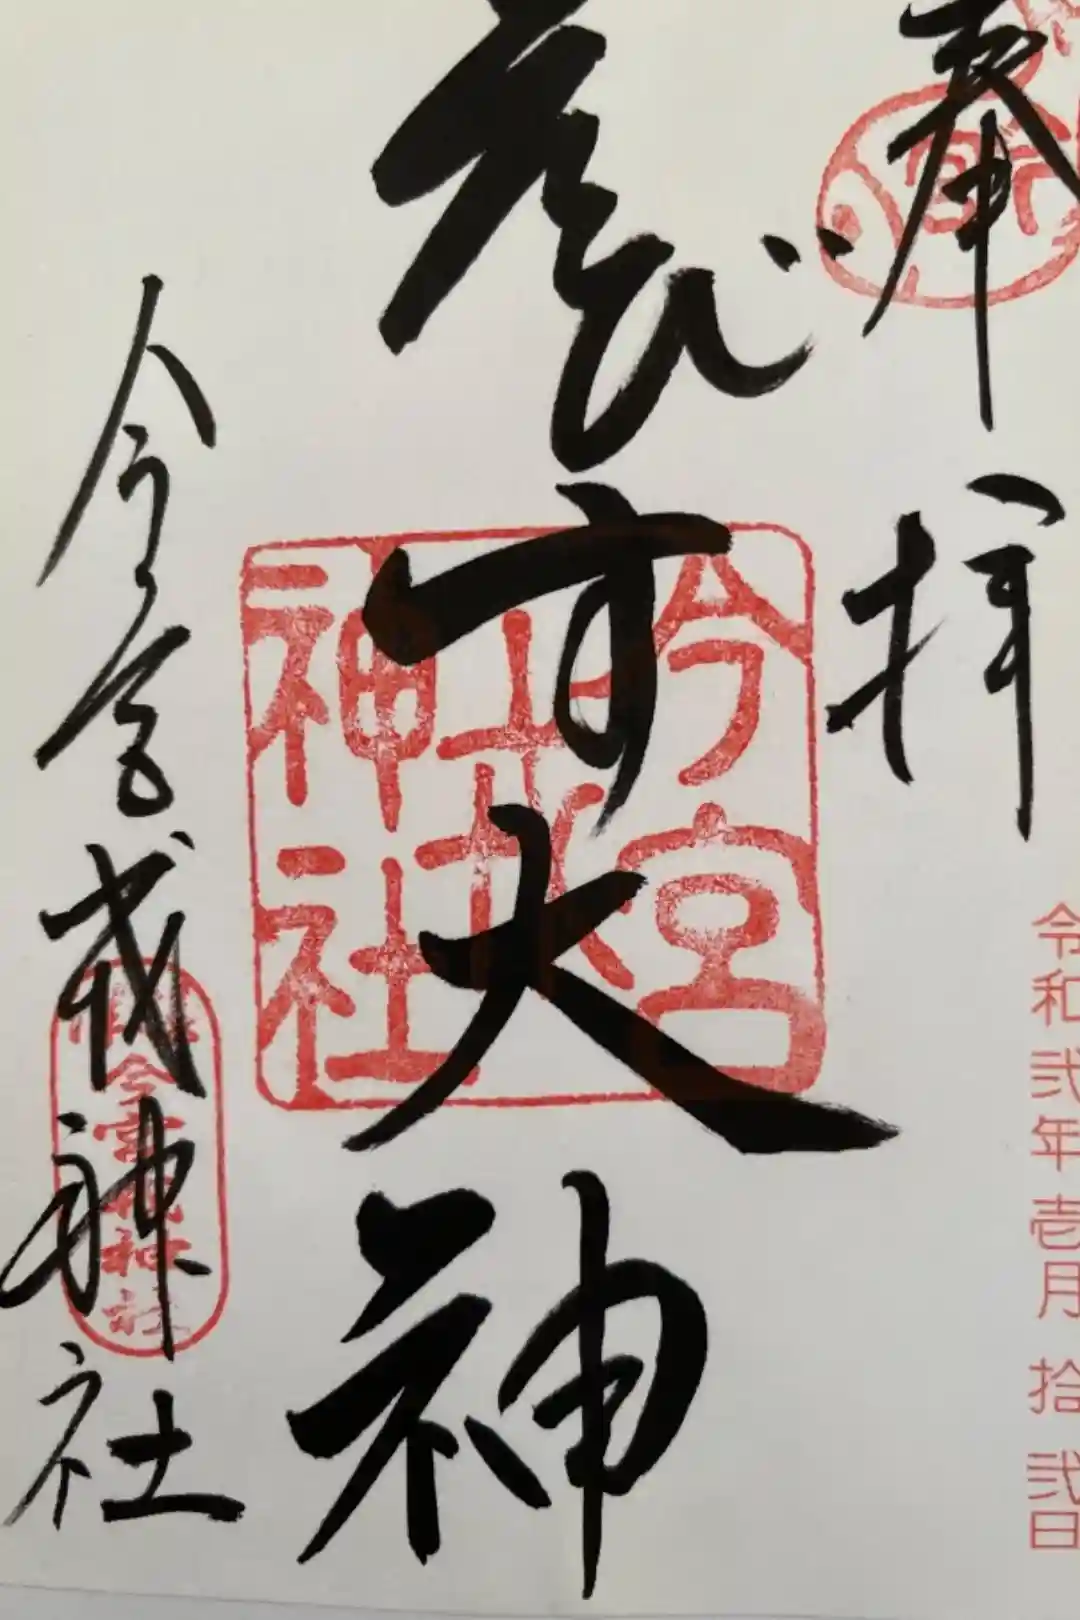 奉拝
令和弐年壱月拾弐日
ゑびす大神
今宮戎神社
今宮戎神社
今宮戎神社